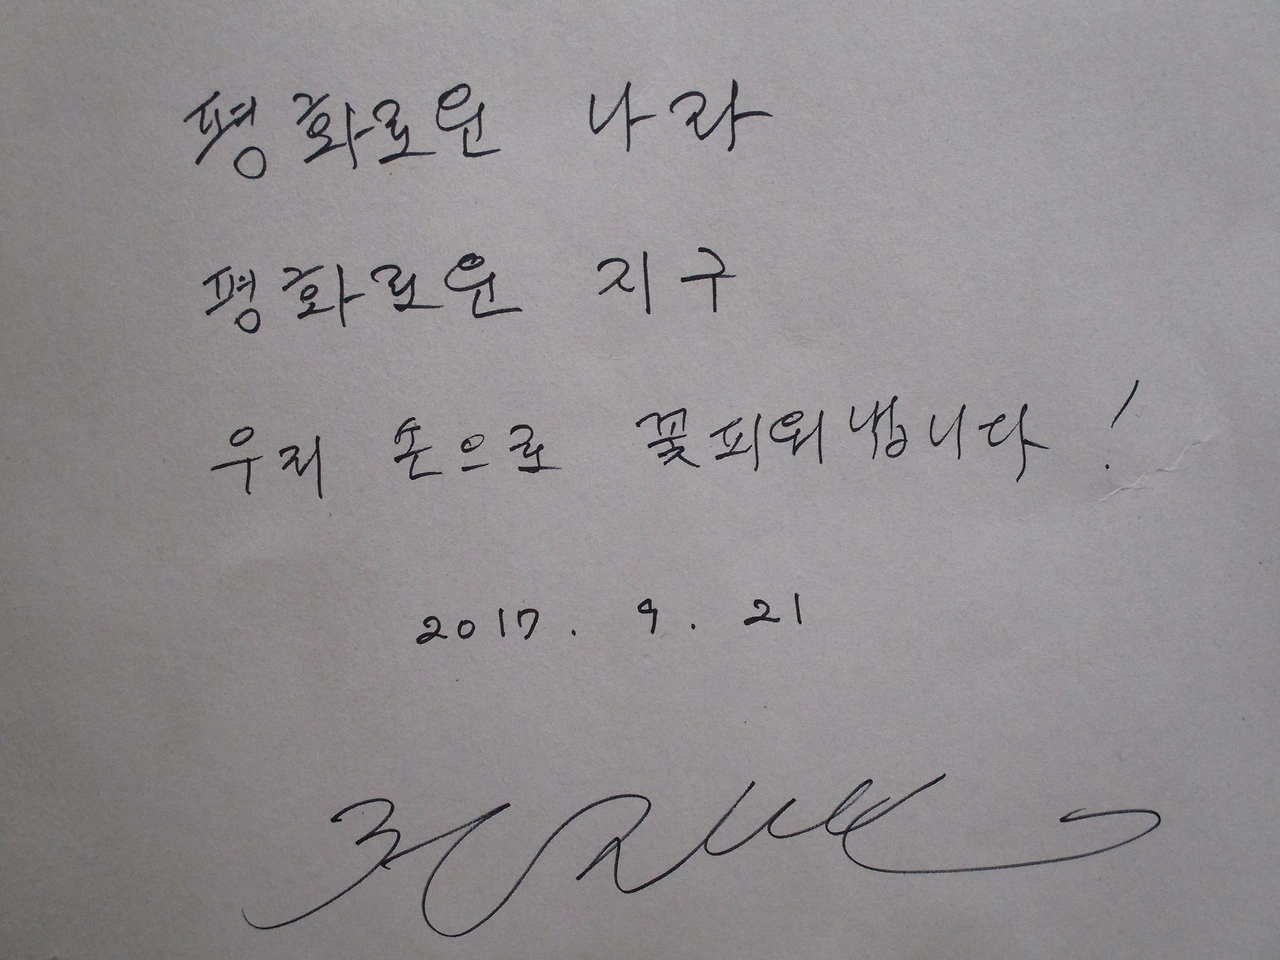 평화로운 나라
평화로운 지구
우리 손으로 꽃피워냅니다!
2017. 9. 21